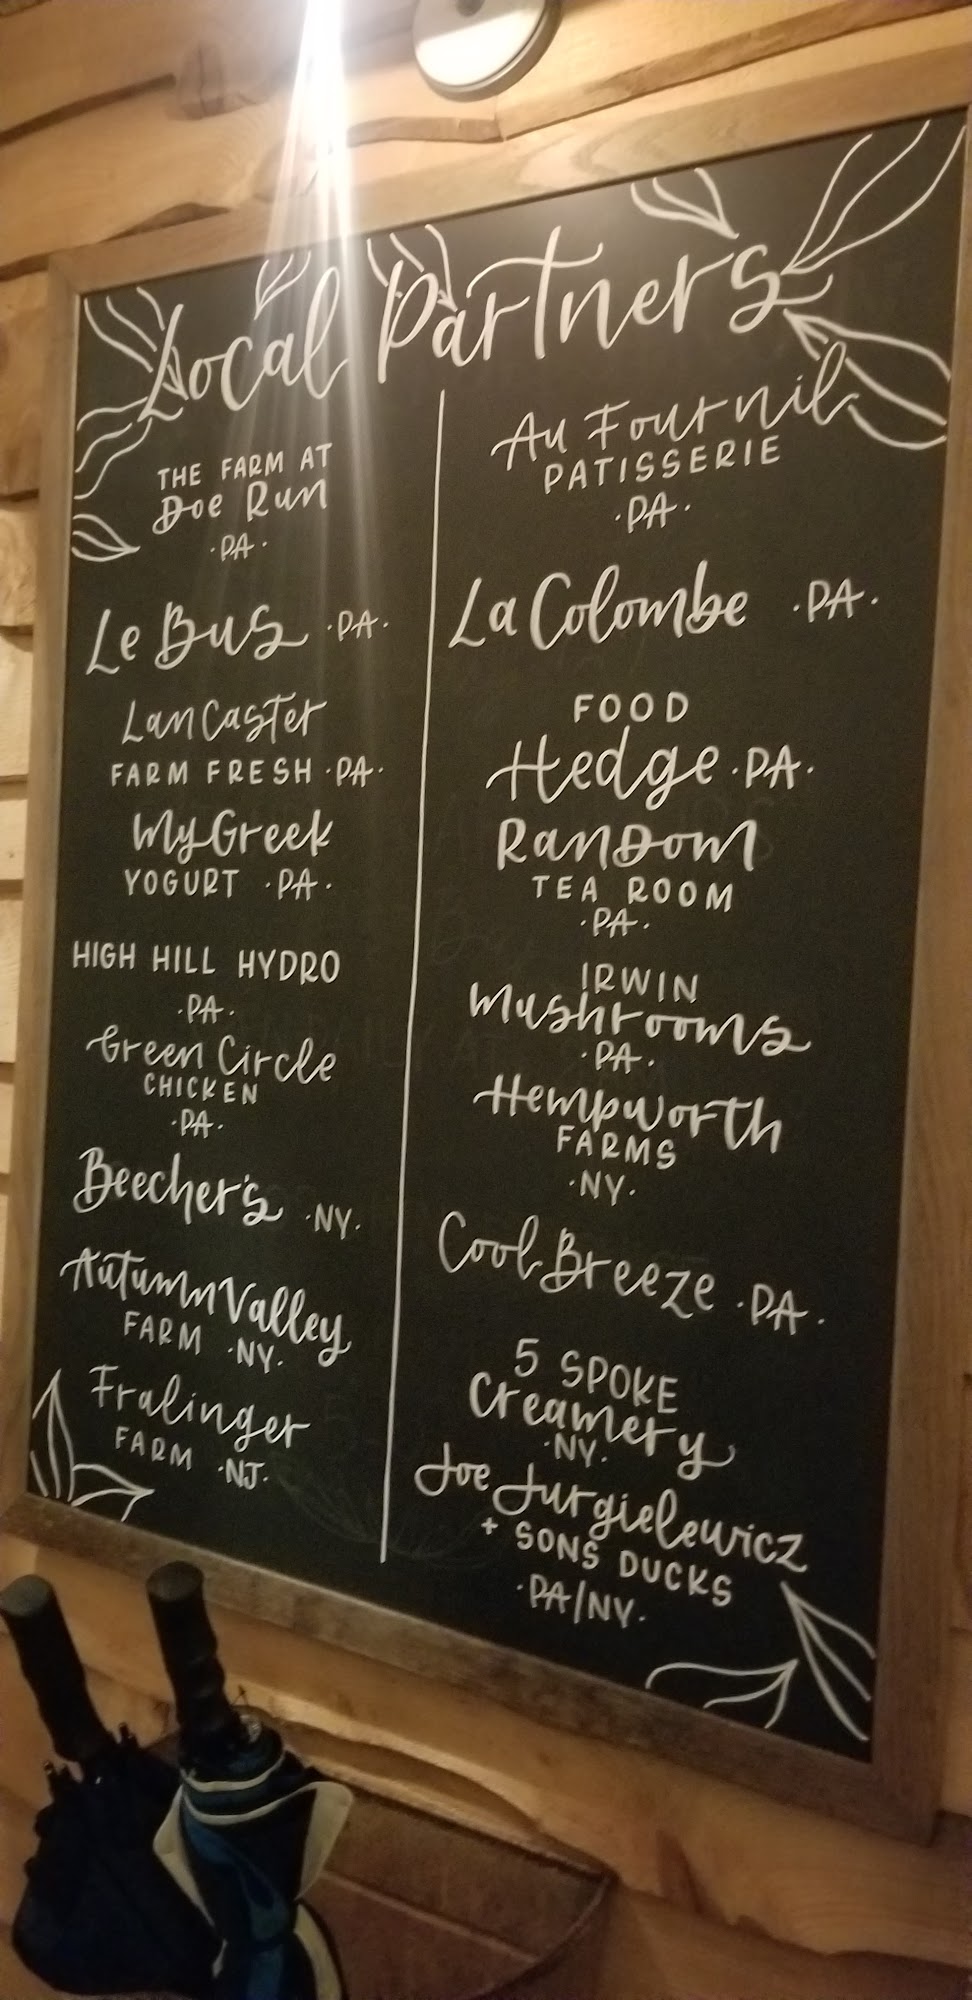 Local Partners
THE FARM AT
Doe Run
·PA·
Le Bus ·PA·
Lancaster
FARM FRESH ·PA·
My Greek
YOGURT ·PA·
HIGH HILL HYDRO
·PA·
Green Circle
CHICKEN
·PA·
Beecher's ·NY·
Autumn Valley
FARM ·NY·
Fralinger
FARM ·NJ·
Au Fournil
PATISSERIE
·PA·
La Colombe ·PA·
FOOD
Hedge ·PA·
Random
TEA ROOM
·PA·
IRWIN
Mushrooms
·PA·
Hempworth
FARMS
·NY·
Cool Breeze ·PA·
5 SPOKE
Creamery
·NY·
Joe Jurgielewicz
+ SONS DUCKS
·PA/NY·